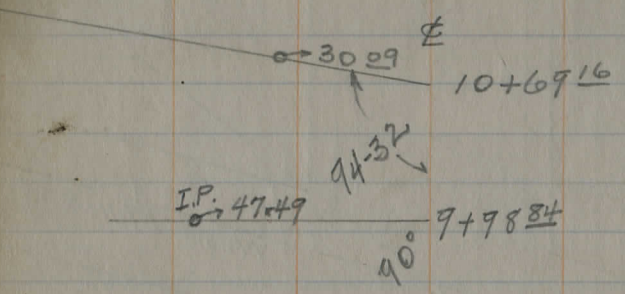 ℄
30 09
10+69 16
94-32
I.P. 47.49
9+98 84
90°